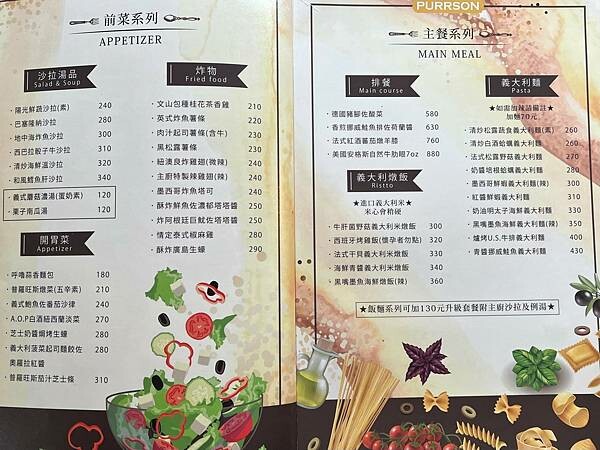 前菜系列
APPETIZER
沙拉湯品
Salad & Soup
·陽光鮮蔬沙拉(素) 240
·巴塞隆納沙拉 280
·地中海炸魚沙拉 300
·西巴拉骰子牛沙拉 310
·清炒海鮮溫沙拉 320
·和風鱈魚肝沙拉 340
·義式蘑菇濃湯(蛋奶素) 120
·栗子南瓜湯 120
開胃菜
Appetizer
·呼嚕蒜香麵包 180
·普羅旺斯燉菜(五辛素) 210
·義式鮑魚佐番茄沙律 240
·A.O.P白酒紐西蘭淡菜 270
·芝士奶醬焗烤生蠔 280
·義大利菠菜起司麵餃佐 280
奧羅拉紅醬
·普羅旺斯茄汁芝士條 310
炸物
Fried food
·文山包種桂花茶香雞 210
·英式炸魚薯條 220
·肉汁起司薯條(含牛) 230
·黑松露薯條 230
·紐澳良炸雞翅(微辣) 240
·主廚特製辣雞翅(辣) 240
·墨西哥炸魚塔可 240
·酥炸鮮魚佐濃郁塔塔醬 250
·炸阿根廷巨魷佐塔塔醬 250
·情定泰式椒麻雞 280
·酥炸廣島生蠔 290
PURRSON
主餐系列
MAIN MEAL
排餐
Main course
·德國豬腳佐酸菜 580
·香煎挪威鮭魚排佐荷蘭醬 630
·法式紅酒蕃茄燉羊膝 760
·美國安格斯自然牛肋眼7oz 880
義大利燉飯
Ristto
★進口義大利米★
米心會稍硬
·牛肝菌野菇義大利米燉飯 300
·西班牙烤雞飯(懷孕者勿點) 320
·法式干貝義大利米燉飯 340
·海鮮青醬義大利米燉飯 340
·黑嘴墨魚海鮮燉飯(辣) 360
義大利麵
Pasta
★如需加辣請備註★
加麵70元
·清炒松露蔬食義大利麵(素) 260
·清炒白酒蛤蠣義大利麵 260
·法式松露野菇義大利麵 270
·奶醬培根蛤蠣義大利麵 270
·墨西哥鮮蝦義大利麵(辣) 300
·紅醬鮮蝦義大利麵 310
·奶油明太子海鮮義大利麵 330
·黑嘴墨魚海鮮義大利麵(辣) 350
·爐烤U.S.牛排義大利麵 400
·青醬挪威鮭魚義大利麵 430
★飯麵系列可加130元升級套餐附主廚沙拉及例湯★